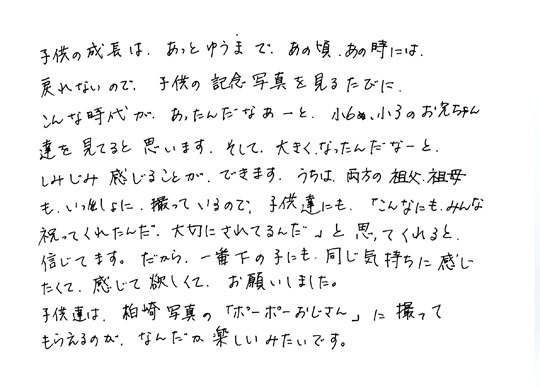 子供の成長は、あっとゆうまで、あの頃、あの時には、
戻れないので、子供の記念写真を見るたびに、
こんな時代が、あったんだなぁーと、小6や、小3のお兄ちゃん
達を見てると思います。そして、大きくなったんだなーと、
しみじみ感じることが、できます。うちは、両方の祖父、祖母
も、いっしょに、撮っているので、子供達にも、「こんなにも、みんな
祝ってくれたんだ、大切にされてるんだ」と思ってくれると、
信じてます。だから、一番下の子にも、同じ気持ちに感じ
たくて、感じて欲しくて、お願いしました。
子供達は、柏崎写真の「ポーポーおじさん」に撮って
もらえるのが、なんだか楽しいみたいです。